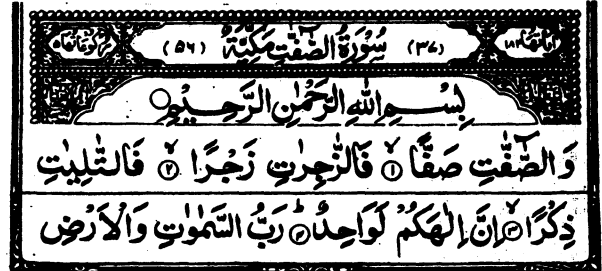 اٰیَاتُهَا ۱۸۲ (۳۷) سُوْرَةُ الصّٰٓفّٰتِ مَكِّیَّةٌ (۵۶) رُكُوْعَاتُهَا ۵
بِسْمِ اللهِ الرَّحْمٰنِ الرَّحِیْمِ
وَالصّٰٓفّٰتِ صَفًّا ۙ۱ فَالزّٰجِرٰتِ زَجْرًا ۙ۲ فَالتّٰلِیٰتِ
ذِكْرًا ۙ۳ اِنَّ اِلٰهَكُمْ لَوَاحِدٌ ؕ۴ رَبُّ السَّمٰوٰتِ وَالْاَرْضِ